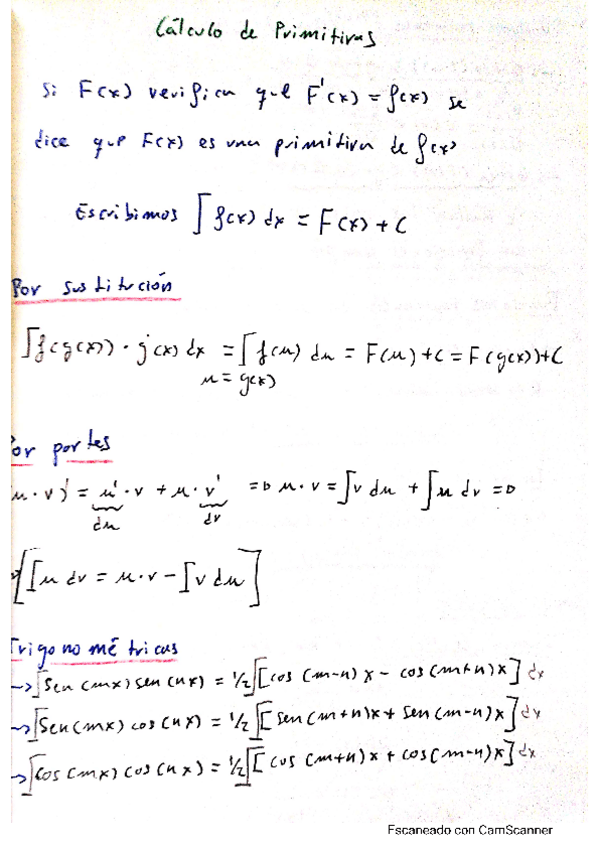 Cálculo de Primitivas
Si F(x) verifica que F'(x) = f(x) se
dice que F(x) es una primitiva de f(x)
Escribimos ∫ f(x) dx = F(x) + C
Por sustitución
∫ f(g(x)) · g'(x) dx = ∫ f(u) du = F(u) + C = F(g(x)) + C
u = g(x)
Por partes
(u · v)' = u' · v + u · v' => u · v = ∫ v du + ∫ u dv =>
du dv
[∫ u dv = u · v - ∫ v du]
Trigonométricas
→ ∫ Sen (mx) sen (nx) = 1/2 ∫ [cos (m-n) x - cos (m+n) x] dx
→ ∫ Sen (mx) cos (nx) = 1/2 ∫ [sen (m+n) x + sen (m-n) x] dx
→ ∫ Cos (mx) cos (nx) = 1/2 ∫ [cos (m+n) x + cos (m-n) x] dx
Escaneado con CamScanner